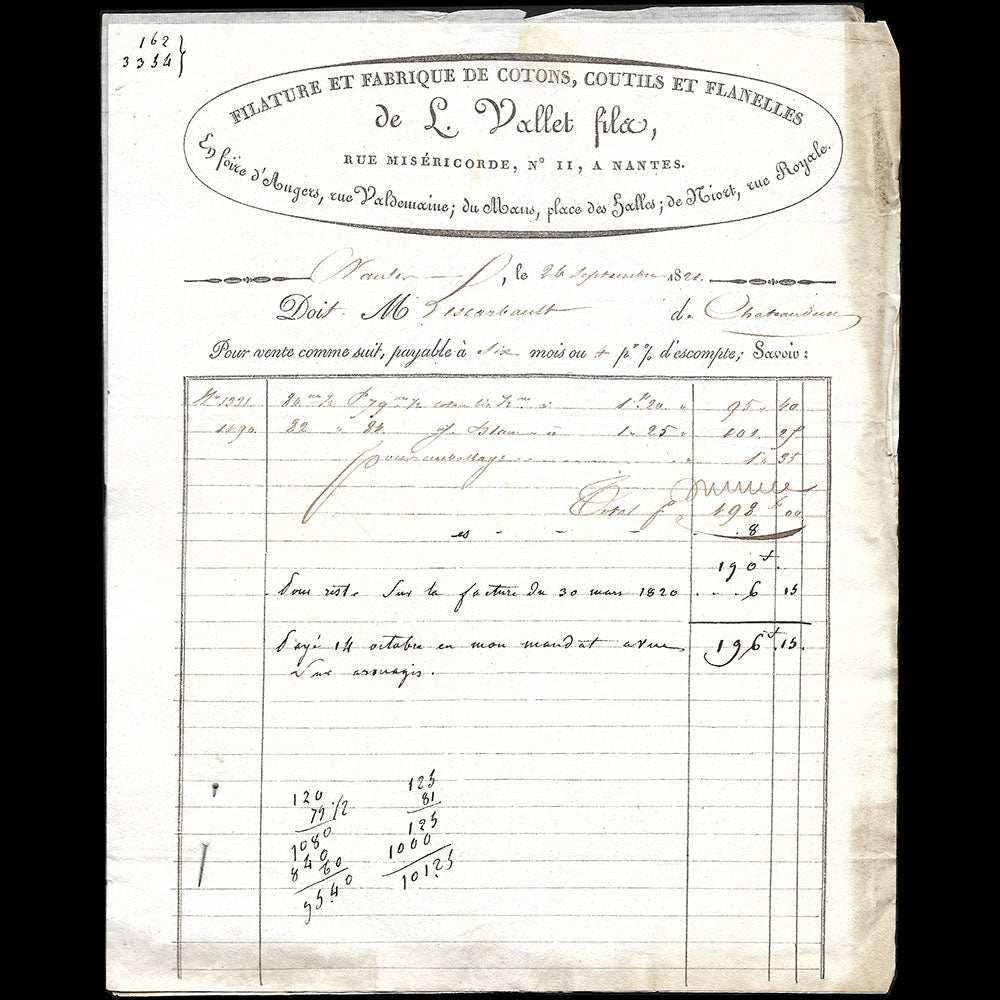 162
3354
FILATURE ET FABRIQUE DE COTONS, COUTILS ET FLANELLES
de L. Vallet fils,
RUE MISÉRICORDE, N° 11, A NANTES.
En foire d'Angers, rue Valdemaine; du Mans, place des Halles; de Niort, rue Royale.
Nantes, le 26 Septembre 1821.
Doit M Descarbault de Chateaudun
Pour vente comme suit, payable à six mois ou 4 pr % d'escompte; Savoir:
N° 1331. 84 1/2 79 1/2 à 1 20 95 40
1490. 82 81 à 1 25 101. 25
pour emballage 1 35
Total f 198 00
8
190
Pour reste sur la facture du 30 mars 1820 6 15
Payé 14 octobre en mon mandat a vue 196 15.
Sur
120 125
79 1/2 81
1080 125
840 1000
60 10125
9540